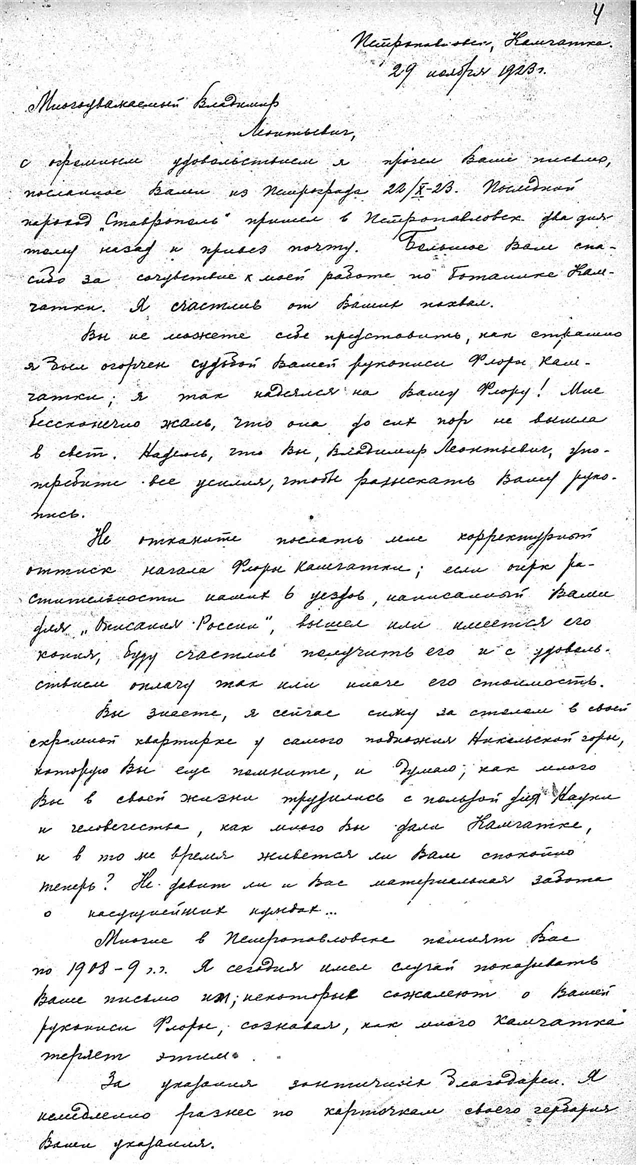 4
Петропавловск, Камчатка.
29 ноября 1923 г.
Многоуважаемый Владимир
Леонтьевич,
с огромным удовольствием я прочел Ваше письмо,
посланное Вами из Петрограда 22/X-23. Последний
пароход „Ставрополь" пришел в Петропавловск два дня
тому назад и привез почту. Большое Вам спа-
сибо за сочувствие к моей работе по ботанике Кам-
чатки. Я счастлив от Ваших похвал.
Вы не можете себе представить, как страшно
я был огорчен судьбой Вашей рукописи Флоры Кам-
чатки; я так надеялся на Вашу Флору! Мне
бесконечно жаль, что она до сих пор не вышла
в свет. Надеюсь, что Вы, Владимир Леонтьевич, упо-
требите все усилия, чтобы разыскать Вашу руко-
пись.
Не откажите послать мне корректурный
оттиск начала Флоры Камчатки; если очерк ра-
стительности наших 6 уездов, написанный Вами
для „Описания России", вышел или имеется его
копия, буду счастлив получить его и с удоволь-
ствием оплачу так или иначе его стоимость.
Вы знаете, я сейчас сижу за столом в своей
скромной квартирке у самого подножия Никольской горы,
которую Вы еще помните, и думаю; как много
Вы в своей жизни трудились с пользой для Науки
и человечества, как много Вы дали Камчатке,
и в то же время живется ли Вам спокойно
теперь? Не давит ли и Вас материальная забота
о насущнейших нуждах...
Многие в Петропавловске помнят Вас
по 1908-9 г.г. Я сегодня имел случай показывать
Ваше письмо им; некоторые сожалеют о Вашей
рукописи Флоры, сознавая, как много Камчатка
теряет этим.
За указания зонтичных благодарен. Я
немедленно разнес по карточкам своего гербария
Ваши указания.